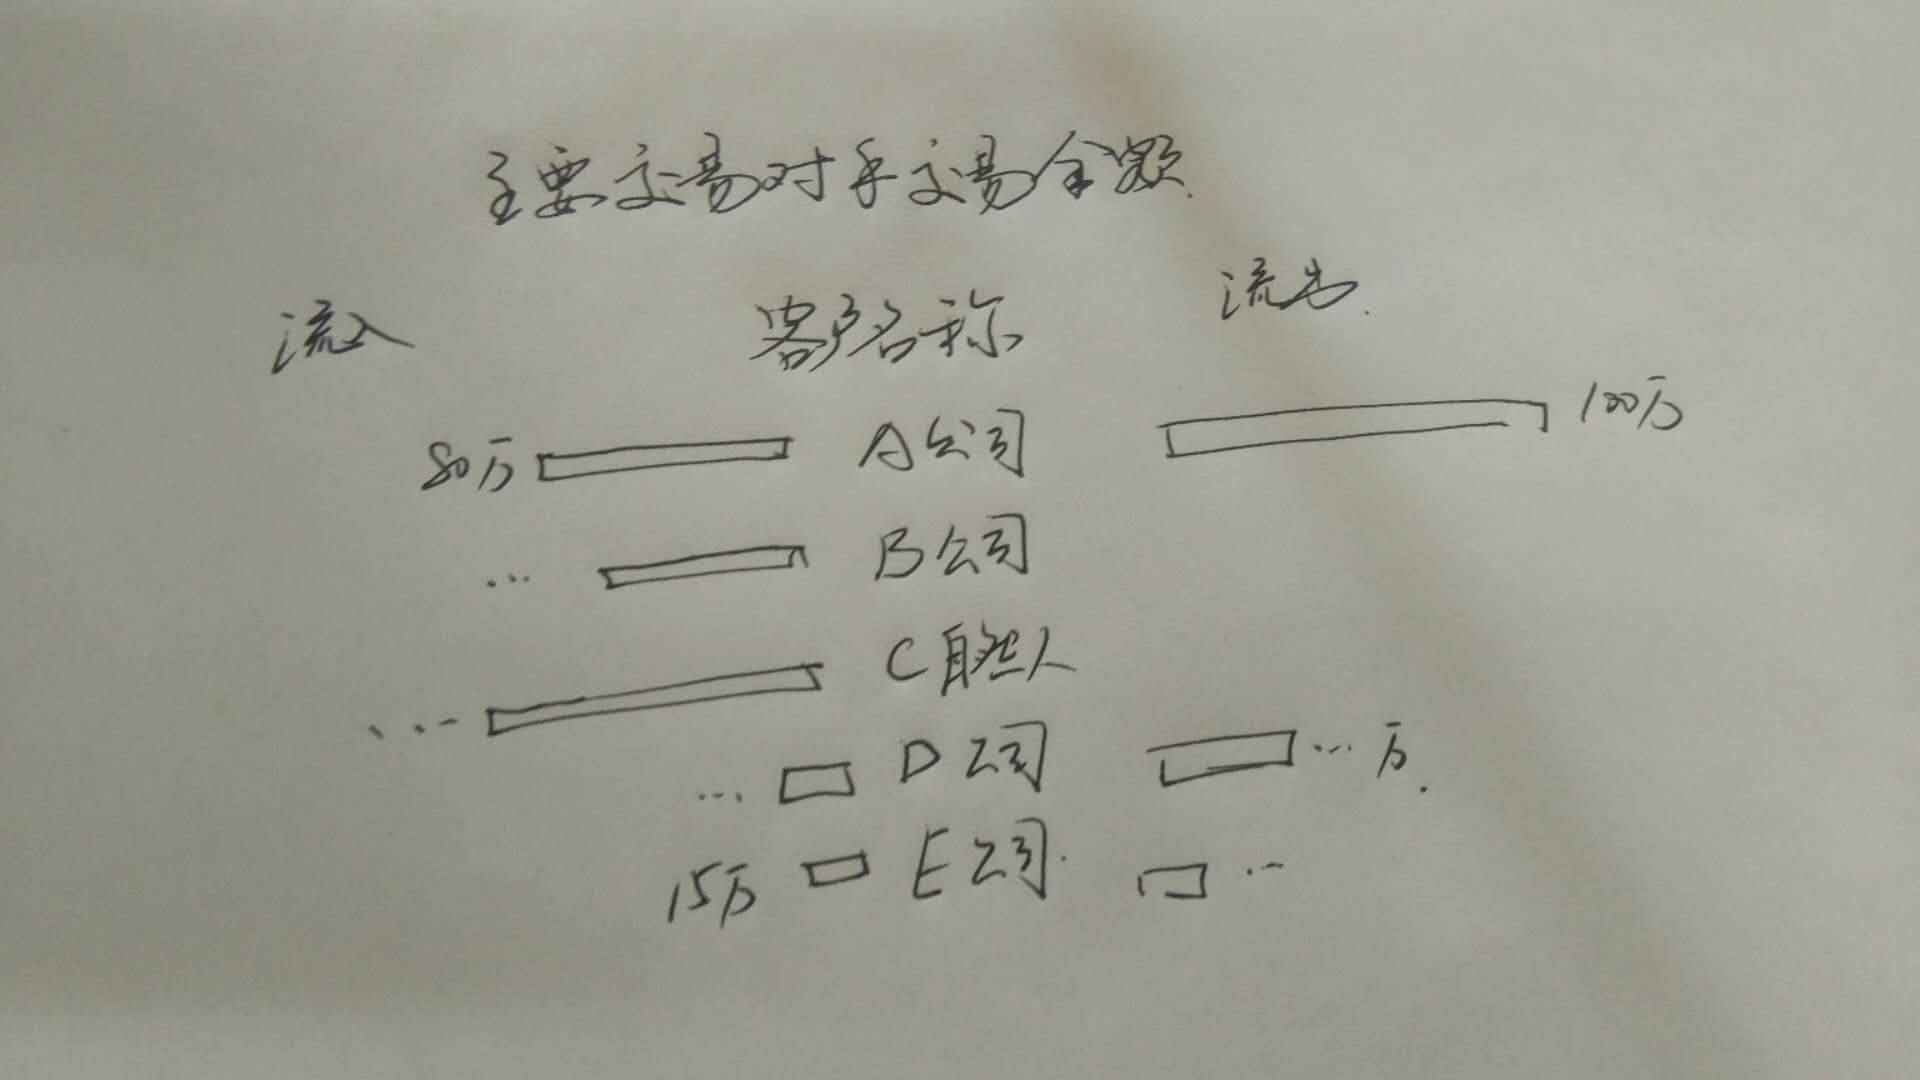 主要交易对手交易金额
流入 客户名称 流出
80万 A公司 100万
... B公司
... C自然人
... D公司 ...万
15万 E公司 ...